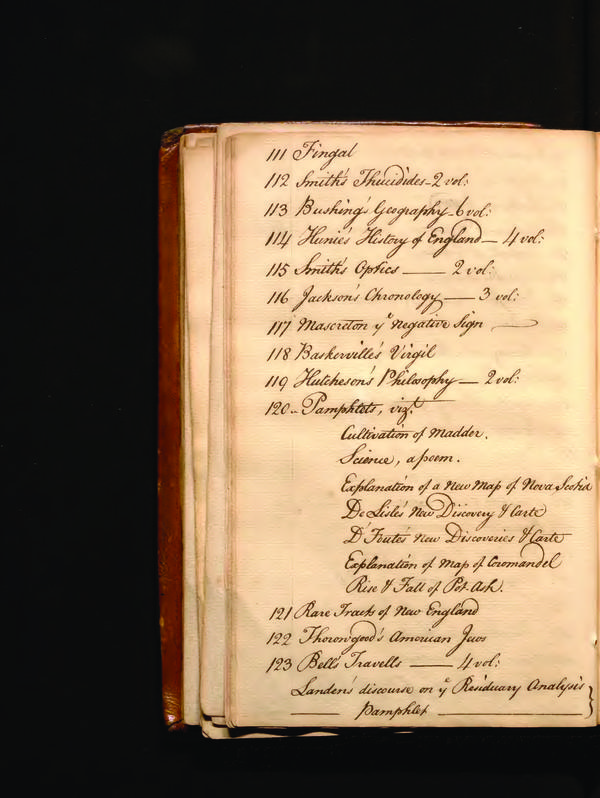 111 Fingal
112 Smith's Thucidides - 2 vol:
113 Bushing's Geography - 6 vol:
114 Hume's History of England — 4 vol:
115 Smith's Optics — 2 vol:
116 Jackson's Chronology — 3 vol:
117 Maseres on yᵉ Negative Sign —
118 Baskerville's Virgil
119 Hutcheson's Philosophy — 2 vol:
120 - Pamphlets, vizᵗ
Cultivation of Madder.
Science, a poem.
Explanation of a New Map of Nova Scotia
De Lisle's New Discovery & Carte
D'Foute's New Discoveries & Carte
Explanation of Map of Coromandel
Rise & Fall of Pot-Ash.
121 Rare Tracts of New England
122 Thorowgood's American Jews
123 Bell's Travells — 4 vol:
Landen's discourse on yᵉ Residuary Analysis
— Pamphlet — }